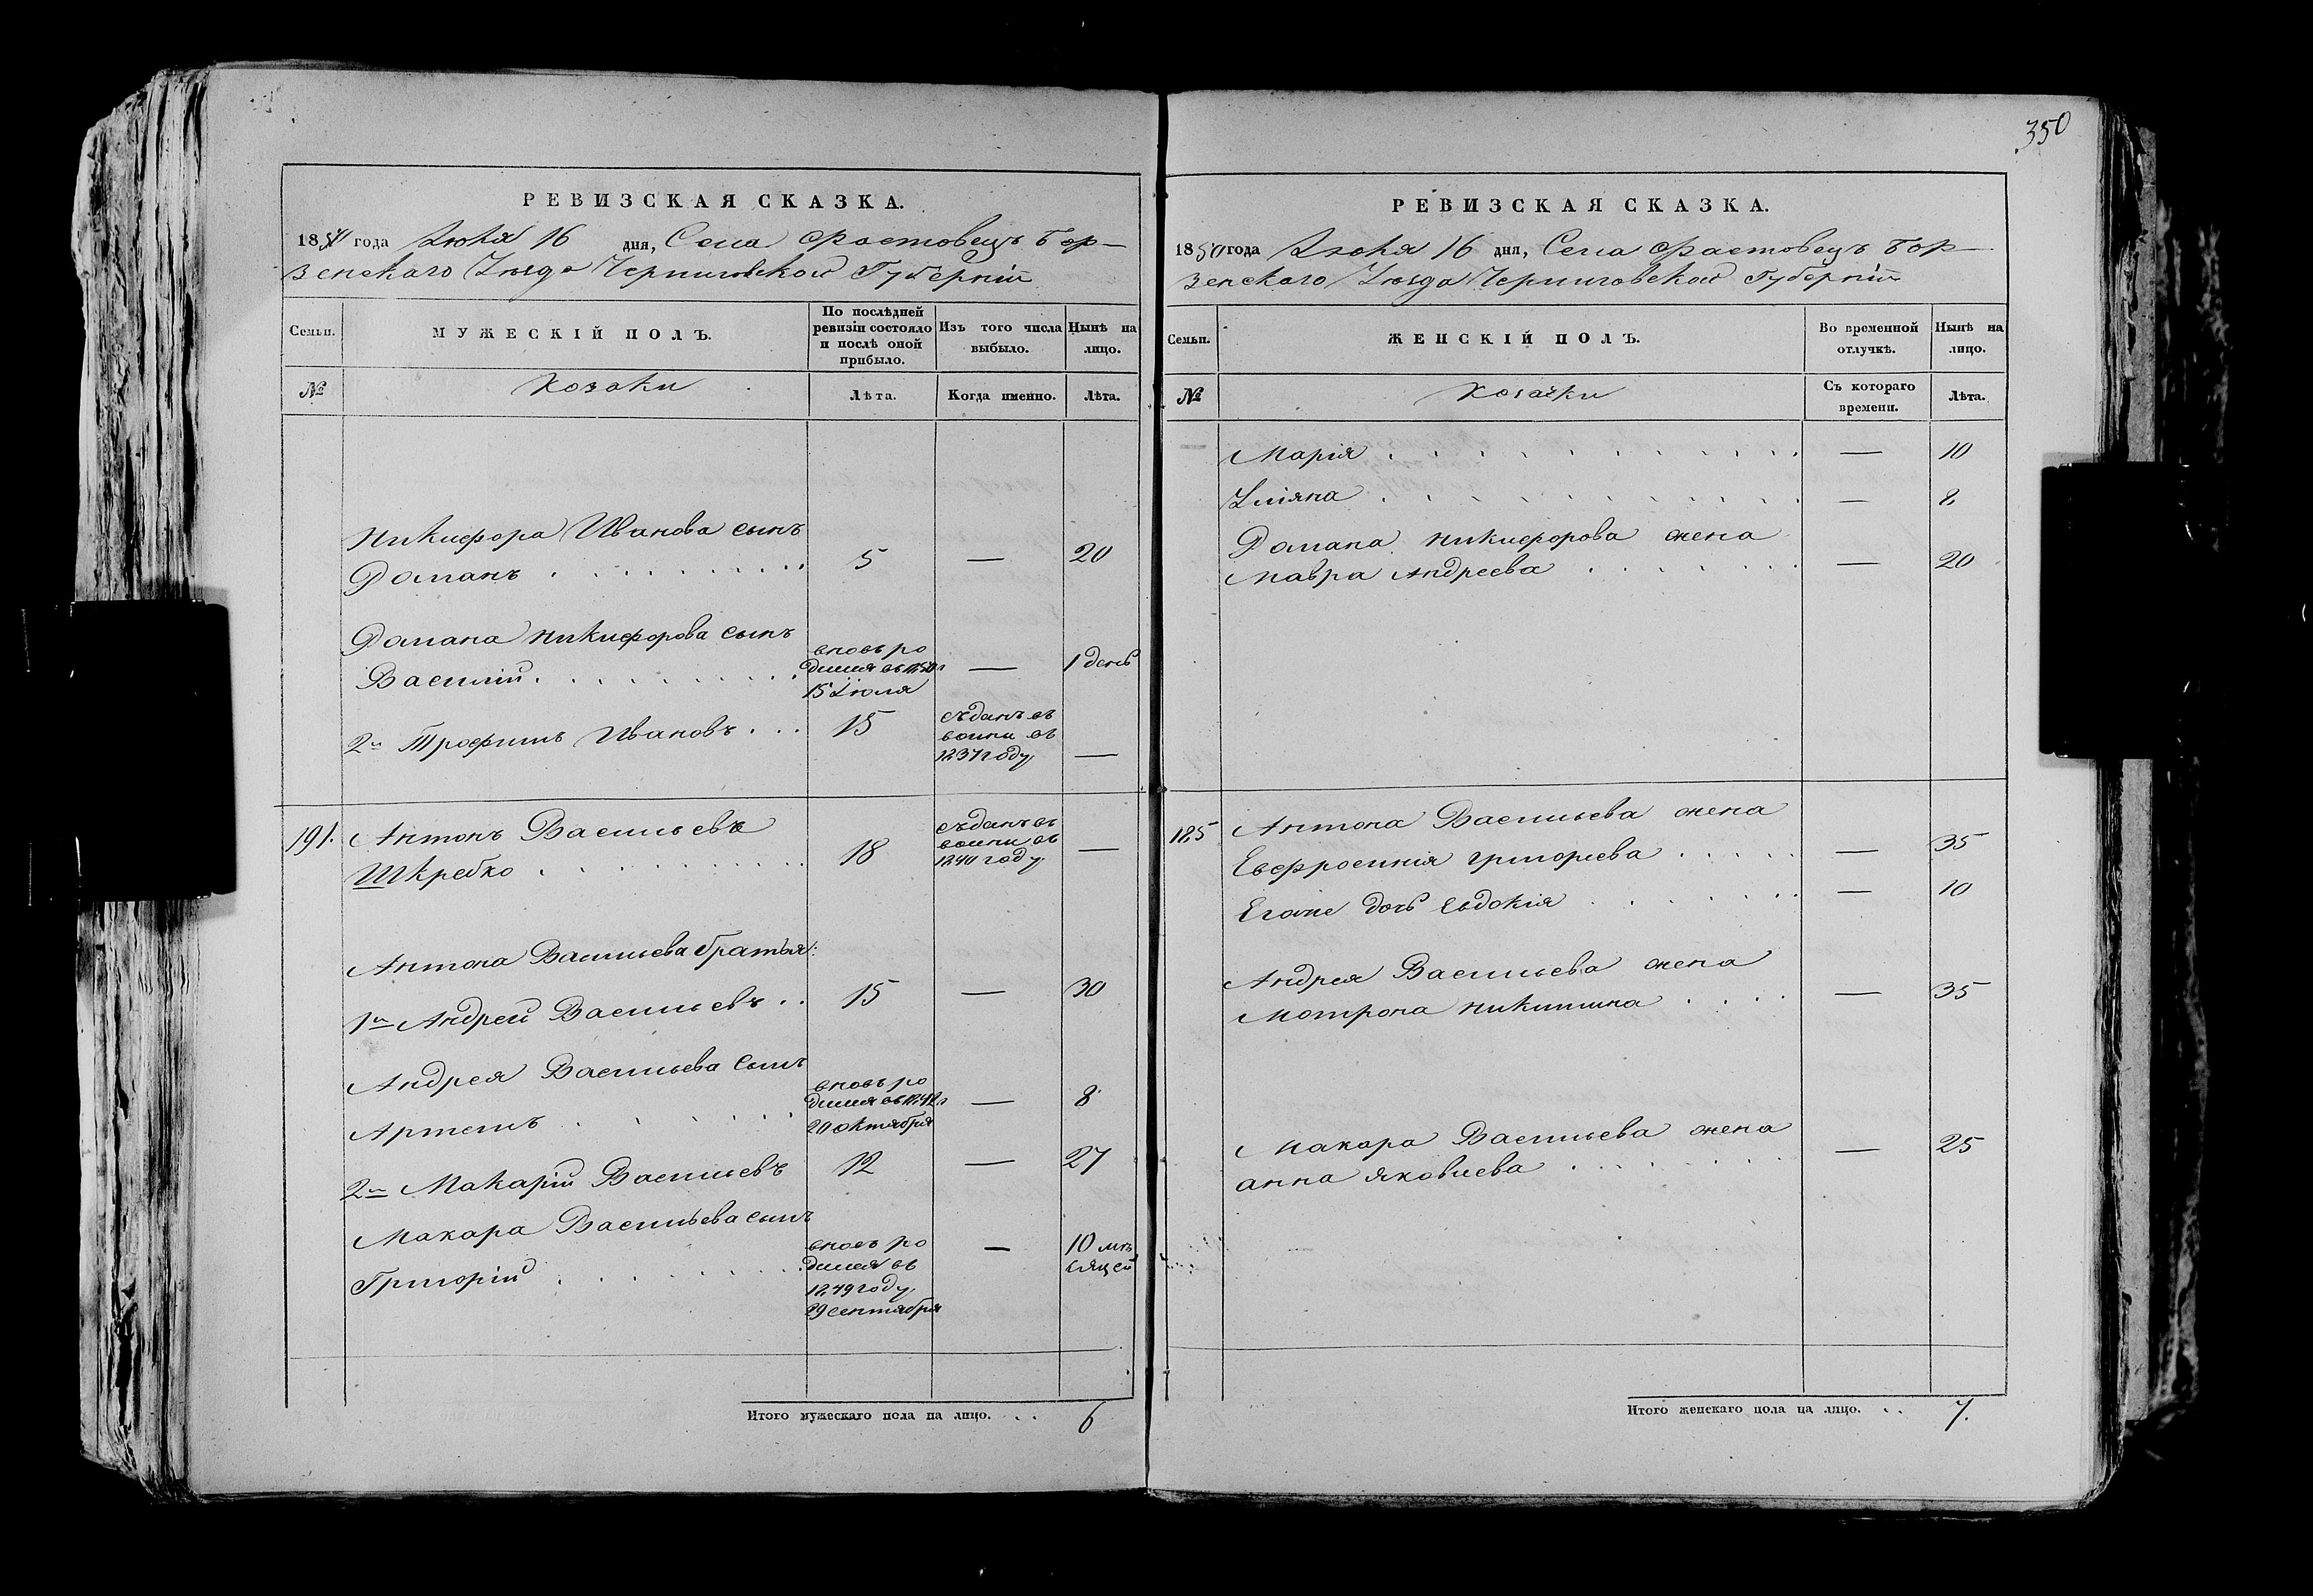 350
РЕВИЗСКАЯ СКАЗКА.
1850 года Июля 16 дня, Села Фастовецъ Бор-
зенскаго Уѣзда Черниговской Губерніи
Семьи.
МУЖЕСКІЙ ПОЛЪ.
По послѣдней
ревизіи состояло
и послѣ оной
прибыло.
Изъ того числа
выбыло.
Нынѣ на
лицо.
№
Козаки
Лѣта.
Когда именно.
Лѣта.
Никифора Иванова сынъ
Романъ . . . . . . . . . 5 — 20
Романа Никифорова сынъ
Василій . . . . . . . . . вновь ро
дился въ 1850 г
15 Июля — 1 день
2й Трофимъ Ивановъ . . . 15 —
съданъ въ
воины въ
1837 году
191. Антонъ Васильевъ
Шкребко . . . . . . . . . 18 —
съданъ въ
воины въ
1840 году
Антона Васильева братья:
1й Андрей Васильевъ . . 15 — 30
Андрея Васильева сынъ
Артемъ . . . . . вновь ро
дился въ 1842 г
20 октября — 8
2й Макарій Васильевъ 12 — 27
Макара Васильева сынъ
Григорій . . . . . . . вновь ро
дился въ
1849 году
29 сентября — 10 мѣ
сяцей
Итого мужескаго пола на лицо. . . 6
РЕВИЗСКАЯ СКАЗКА.
1850 года Июля 16 дня, Села Фастовецъ Бор-
зенскаго Уѣзда Черниговской Губерніи
Семьи.
ЖЕНСКІЙ ПОЛЪ.
Во временной
отлучкѣ.
Нынѣ на
лицо.
№
Козачки
Съ котораго
времени.
Лѣта.
Марія . . . . . . . . . . . . — 10
Уліяна . . . . . . . . . . . — 8
Романа Никифорова жена
Мавра Андреева . . . . . . . — 20
185 Антона Васильева жена
Евфросинія Григорьева . . . . . — 35
Егоже дочь Евдокія . . . . . . . — 10
Андрея Васильева жена
Мотрона Никитина . . . . — 35
Макара Васильева жена
Анна Яковлева . . . . . . . — 25
Итого женскаго пола на лицо. . . 7.